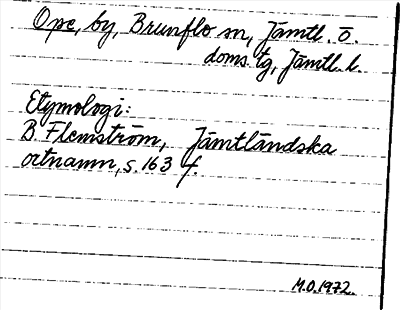 Ope, by, Brunflo sn, Jämtl. ö.
doms. tg, Jämtl. l.
Etymologi:
B Flemström, Jämtländska
ortnamn, s. 163 f.
M.O. 1972.